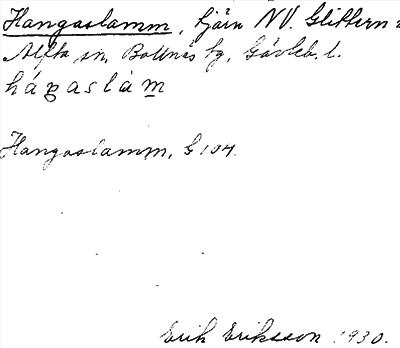 Hangaslamm, tjärn NV. Glittern i
Alfta sn, Bollnäs tg, Gävleb. l.
háŋaslám̲
Hangaslamm, G 104.
Erik Eriksson 1930.